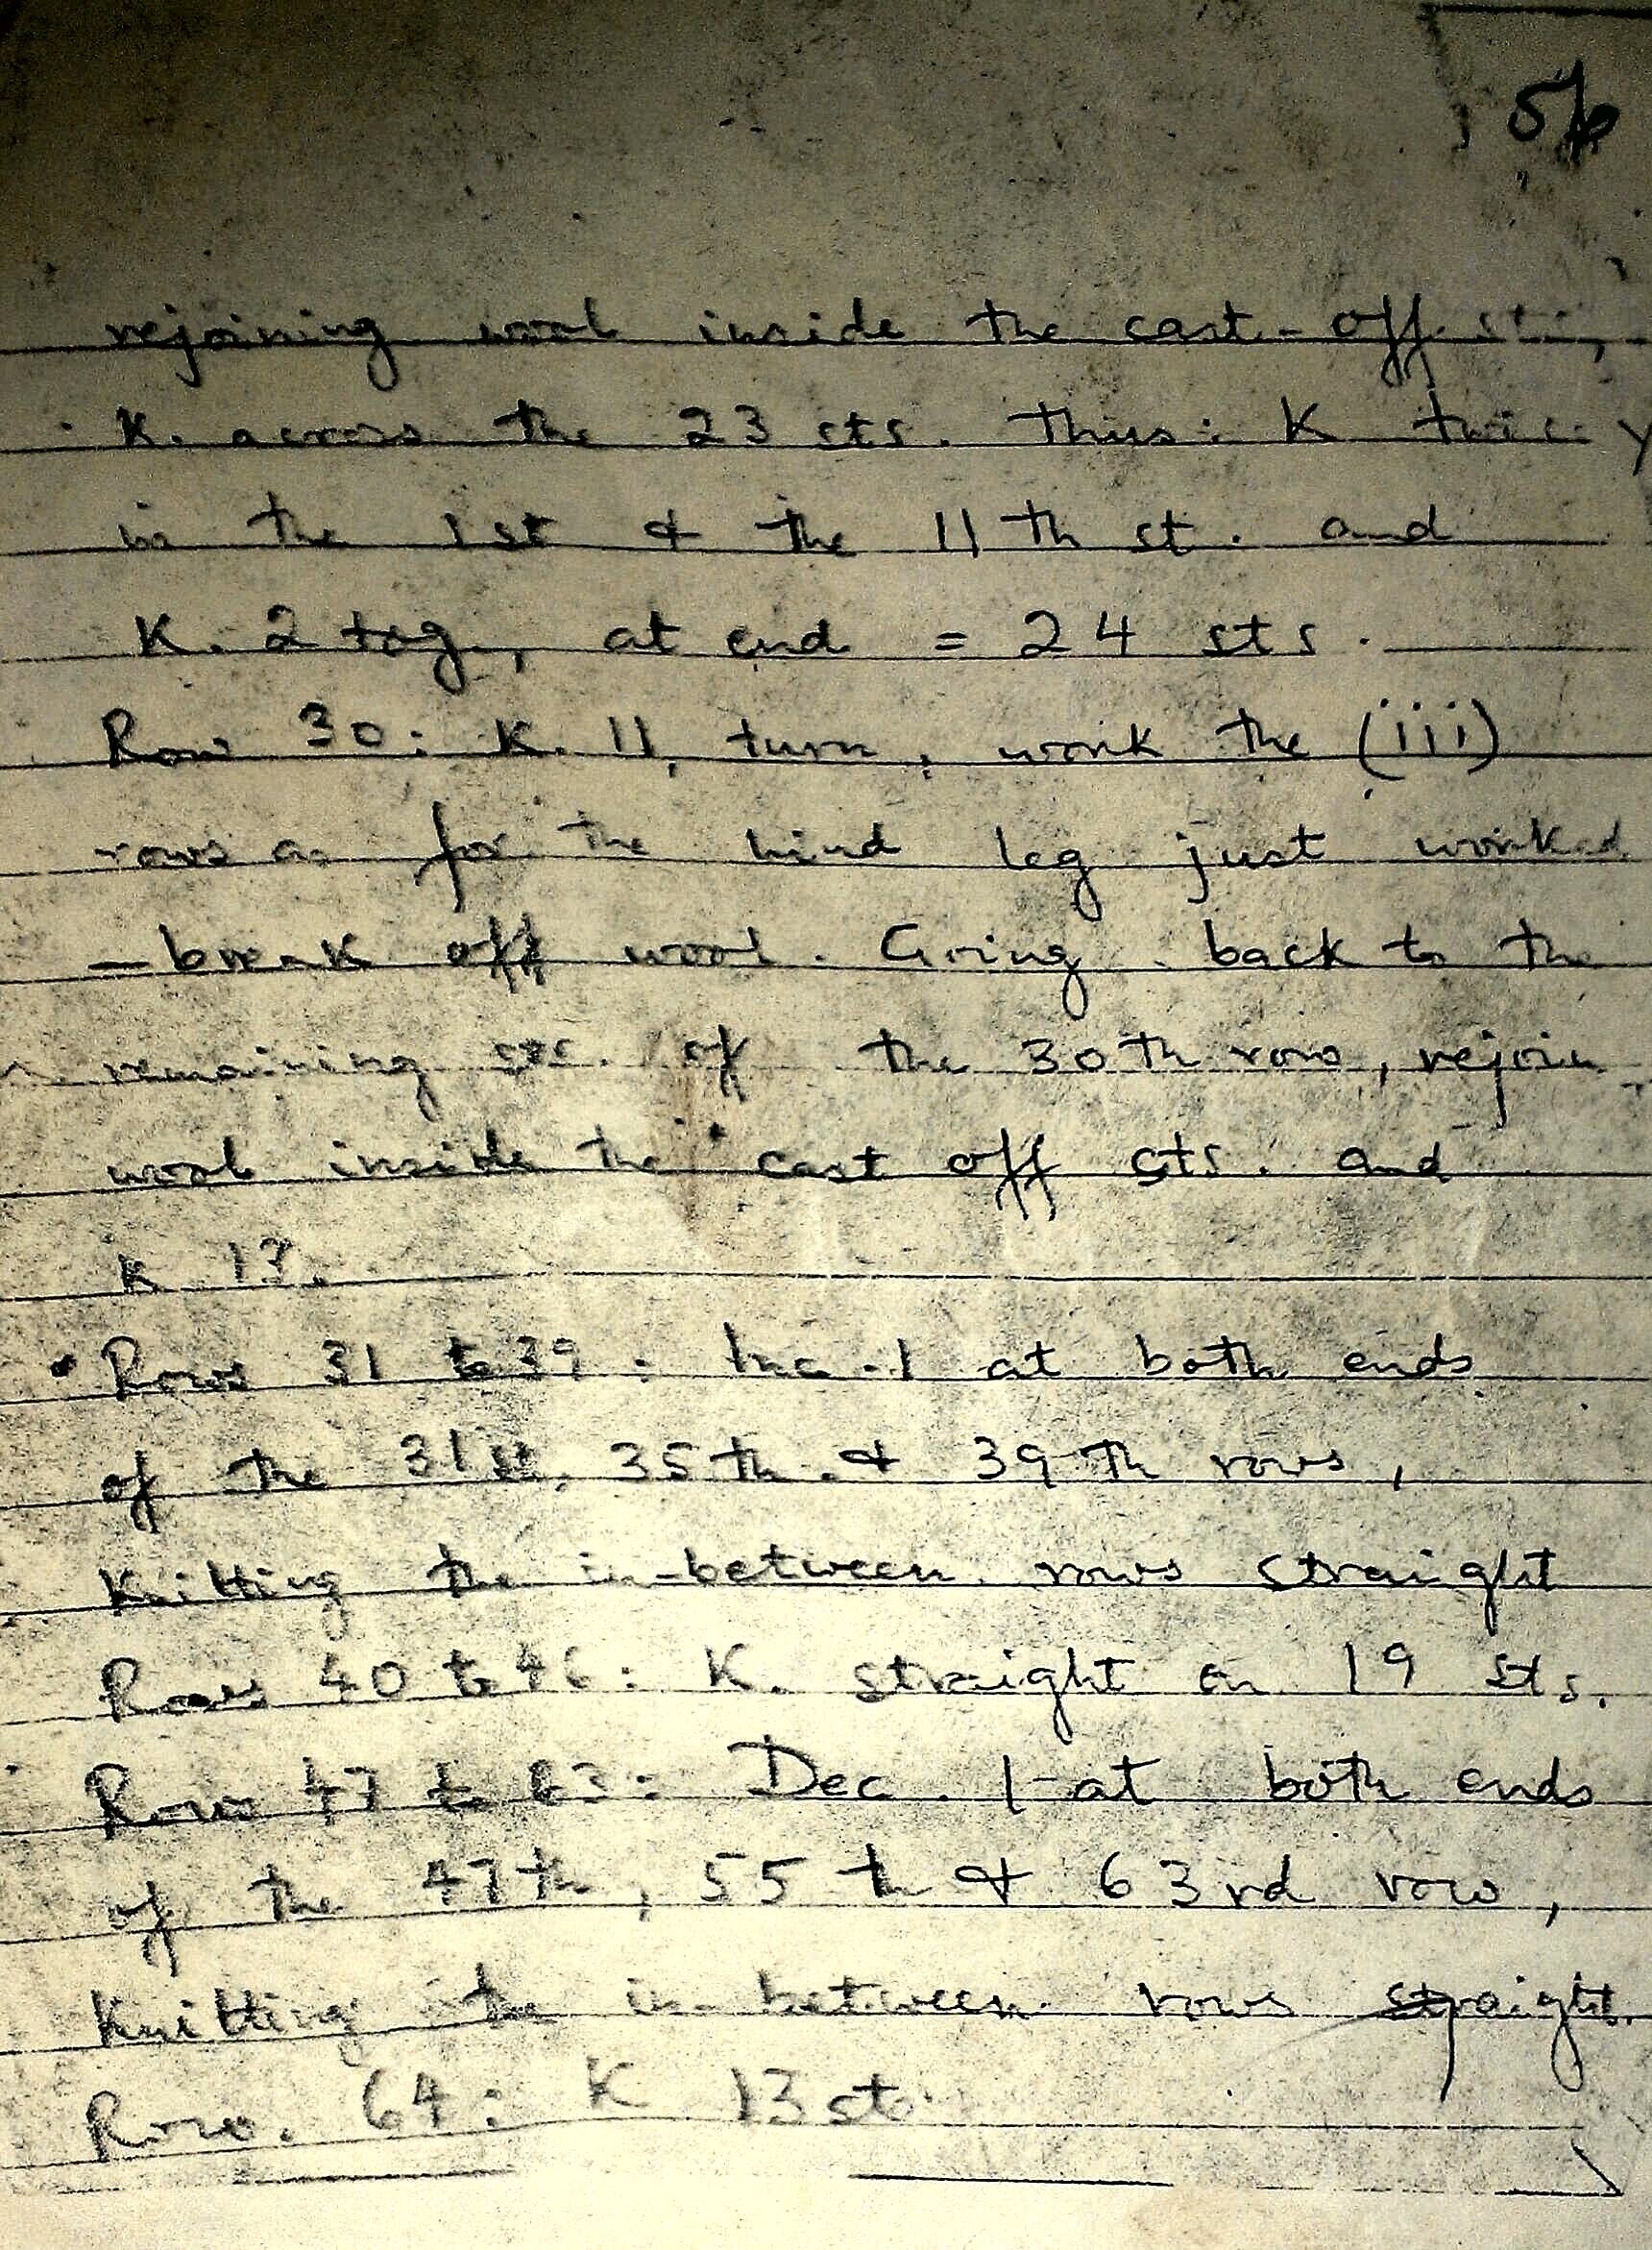 5b
rejoining wool inside the cast-off sts,
K. across the 23 sts. Thus: K twice
in the 1st & the 11th st. and
K. 2 tog., at end = 24 sts.
Row 30: K. 11, turn, work the (iii)
rows as for the hind leg just worked
- break off wool. Going back to the
remaining sts. of the 30th row, rejoin
wool inside the cast off sts. and
K 13.
Rows 31 to 39: Inc. 1 at both ends
of the 31st, 35th & 39th rows,
Knitting the in-between rows straight
Rows 40 to 46: K. straight on 19 sts.
Row 47 to 63: Dec. 1 at both ends
of the 47th, 55th & 63rd row,
Knitting the in-between rows straight.
Row. 64: K 13 st.